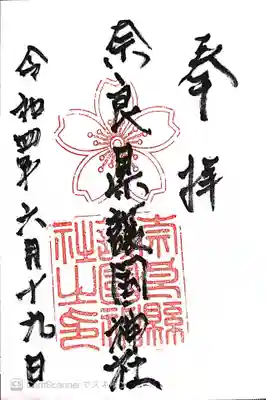 奉拝
奈良県護國神社
奈良縣護國神社之印
令和四年六月十九日
CS CamScanner でスキ